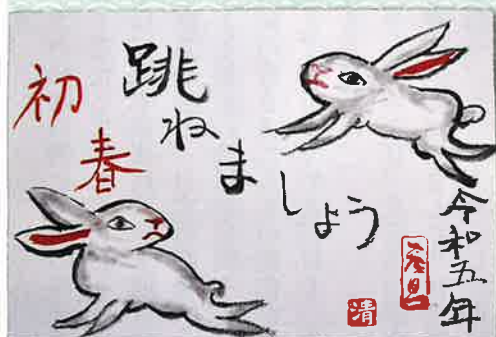 初春
跳ねましょう
令和五年
元旦
清